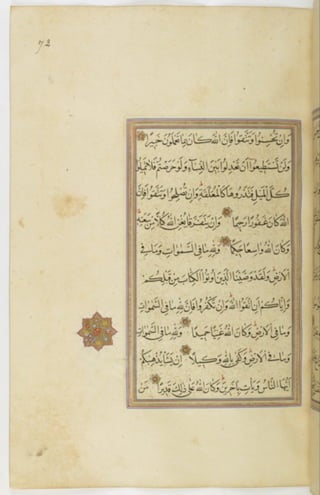 72
وَاِنْ تُحْسِنُوا وَتَتَّقُوا فَاِنَّ اللّٰهَ كَانَ بِمَا تَعْمَلُونَ خَبِيرًا
وَلَنْ تَسْتَطِيعُوا اَنْ تَعْدِلُوا بَيْنَ النِّسَاءِ وَلَوْ حَرَصْتُمْ فَلَا تَمِيلُوا
كُلَّ الْمَيْلِ فَتَذَرُوهَا كَالْمُعَلَّقَةِ وَاِنْ تُصْلِحُوا وَتَتَّقُوا فَاِنَّ
اللّٰهَ كَانَ غَفُورًا رَحِيمًا وَاِنْ يَتَفَرَّقَا يُغْنِ اللّٰهُ كُلًّا مِنْ سَعَتِهِ
وَكَانَ اللّٰهُ وَاسِعًا حَكِيمًا وَلِلّٰهِ مَا فِي السَّمٰوَاتِ وَمَا فِي
الْاَرْضِ وَلَقَدْ وَصَّيْنَا الَّذِينَ اُوتُوا الْكِتَابَ مِنْ قَبْلِكُمْ
وَاِيَّاكُمْ اَنِ اتَّقُوا اللّٰهَ وَاِنْ تَكْفُرُوا فَاِنَّ لِلّٰهِ مَا فِي السَّمٰوَاتِ
وَمَا فِي الْاَرْضِ وَكَانَ اللّٰهُ غَنِيًّا حَمِيدًا وَلِلّٰهِ مَا فِي السَّمٰوَاتِ
وَمَا فِي الْاَرْضِ وَكَفٰى بِاللّٰهِ وَكِيلًا اِنْ يَشَأْ يُذْهِبْكُمْ
اَيُّهَا النَّاسُ وَيَأْتِ بِاٰخَرِينَ وَكَانَ اللّٰهُ عَلٰى ذٰلِكَ قَدِيرًا مَنْ